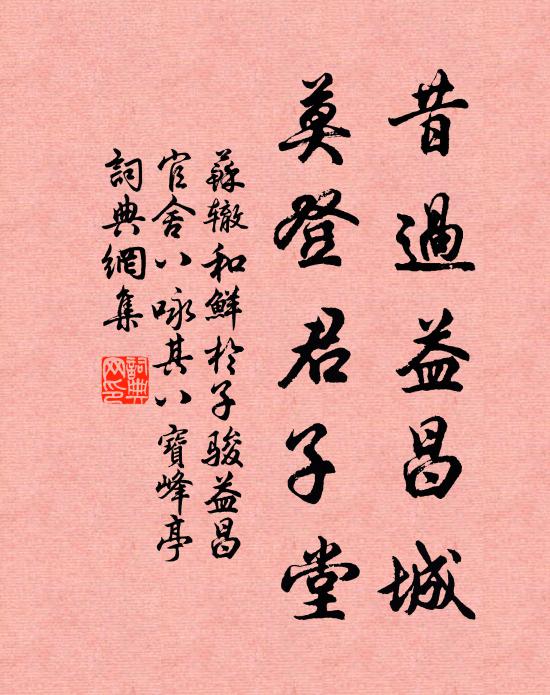 昔過益昌城
莫登君子堂
蘇辙和鮮於子駿益昌
官舍八咏其八寶峰亭
詞典網集
詞典網印